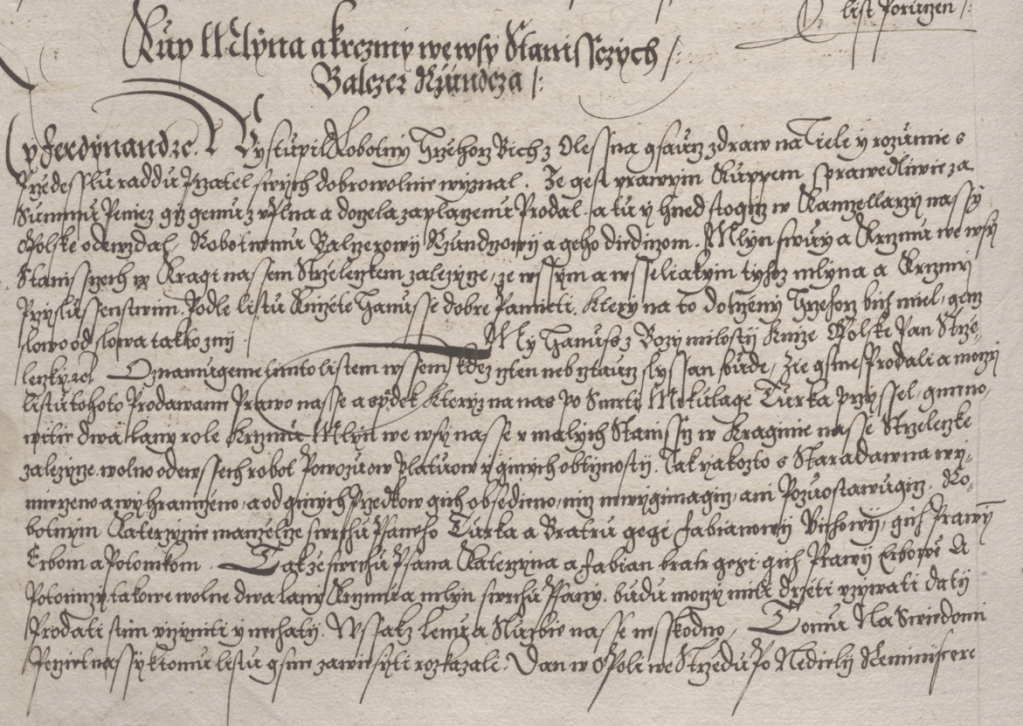 list Poručen /:
Kup Mlyna a krczmy we wsy Stanissczych /:
Balczer Kzundcza /:
My Ferdynand ꝛc. Wystupil Robotny Grzehorz Bich z Olessna gsaucz zdraw na Tiele y rozumie s
Przedesslu raddu Przatel swych dobrowolnie wyznal. Ze gest prawym Kuppem sprawedliwie za
Summu Peniez giz gemu z uplna a doczela zaplaczenu Prodal. a tu y hned stogicz w Kanczellarzy nassy
Opolske odewzdal Robotnemu Balczerowy Kzundczowy a geho diediczom. Mlyn swuy a Krczmu we wsy
Stanissczech w Kragi nassem Strzeleczkem zalezycze, ze wssym a wsseliakym tychz mlyna a Krczmy
Przyslussenstwim. Podle listu Knizete Hanusse dobre Pamieti. Ktery na to dotczeny Grzehorz bich miel, genz
slowo od slowa takto zny
My Hanuss z Bozy milosty Knize Opolske Pan Strze-
leczky ꝛc Oznamugeme timto listem wssem kdez cten neb cztaucz slyssan bude, Zie gsme Prodali a moczy
listu tohoto Prodawame Prawo nasse a spadek kteryz na nas po Smrti Mikulasse Turka przyssel, gmeno-
witie dwa lany role Krczmu Mlyn we wsy nasse v malych Stanissczy w Kragine nasse Strzeleczke
zalezycze. wolno ode wssech robot Powozuow Platuow y ginych obtiznosty. Tak yakozto s Staradawna wy-
mierzeno a wyhraniczeno, a od ginych Przedkow gich obsedieno, nicz newygimagicz, ani Pozuostawugicz. Ro-
botnym Katerzynie manzelcze swrchu Psaneho Turka a Bratru gegi Fabianowy Bichowy, gich Prawy
Erbom a Potomkom. Takze swrchu Psana Katerzyna a Fabian bratr gegi gich Prawy Erbowe A
Potomczy, takowe wolne dwa lany Krczmu a mlyn swrchu Psany. budu moczy miti drzeti vzywati daty
Prodati s tim vcziniti y nechaty. Wssak Lenu a Sluzbie nasse nesskodno, Tomu Na Swiedomi
Peczet nassy k tomu listu gsme zawiesyti rozkazali. Dan w Opoli we Strzedu Po Nediely Reminiscere